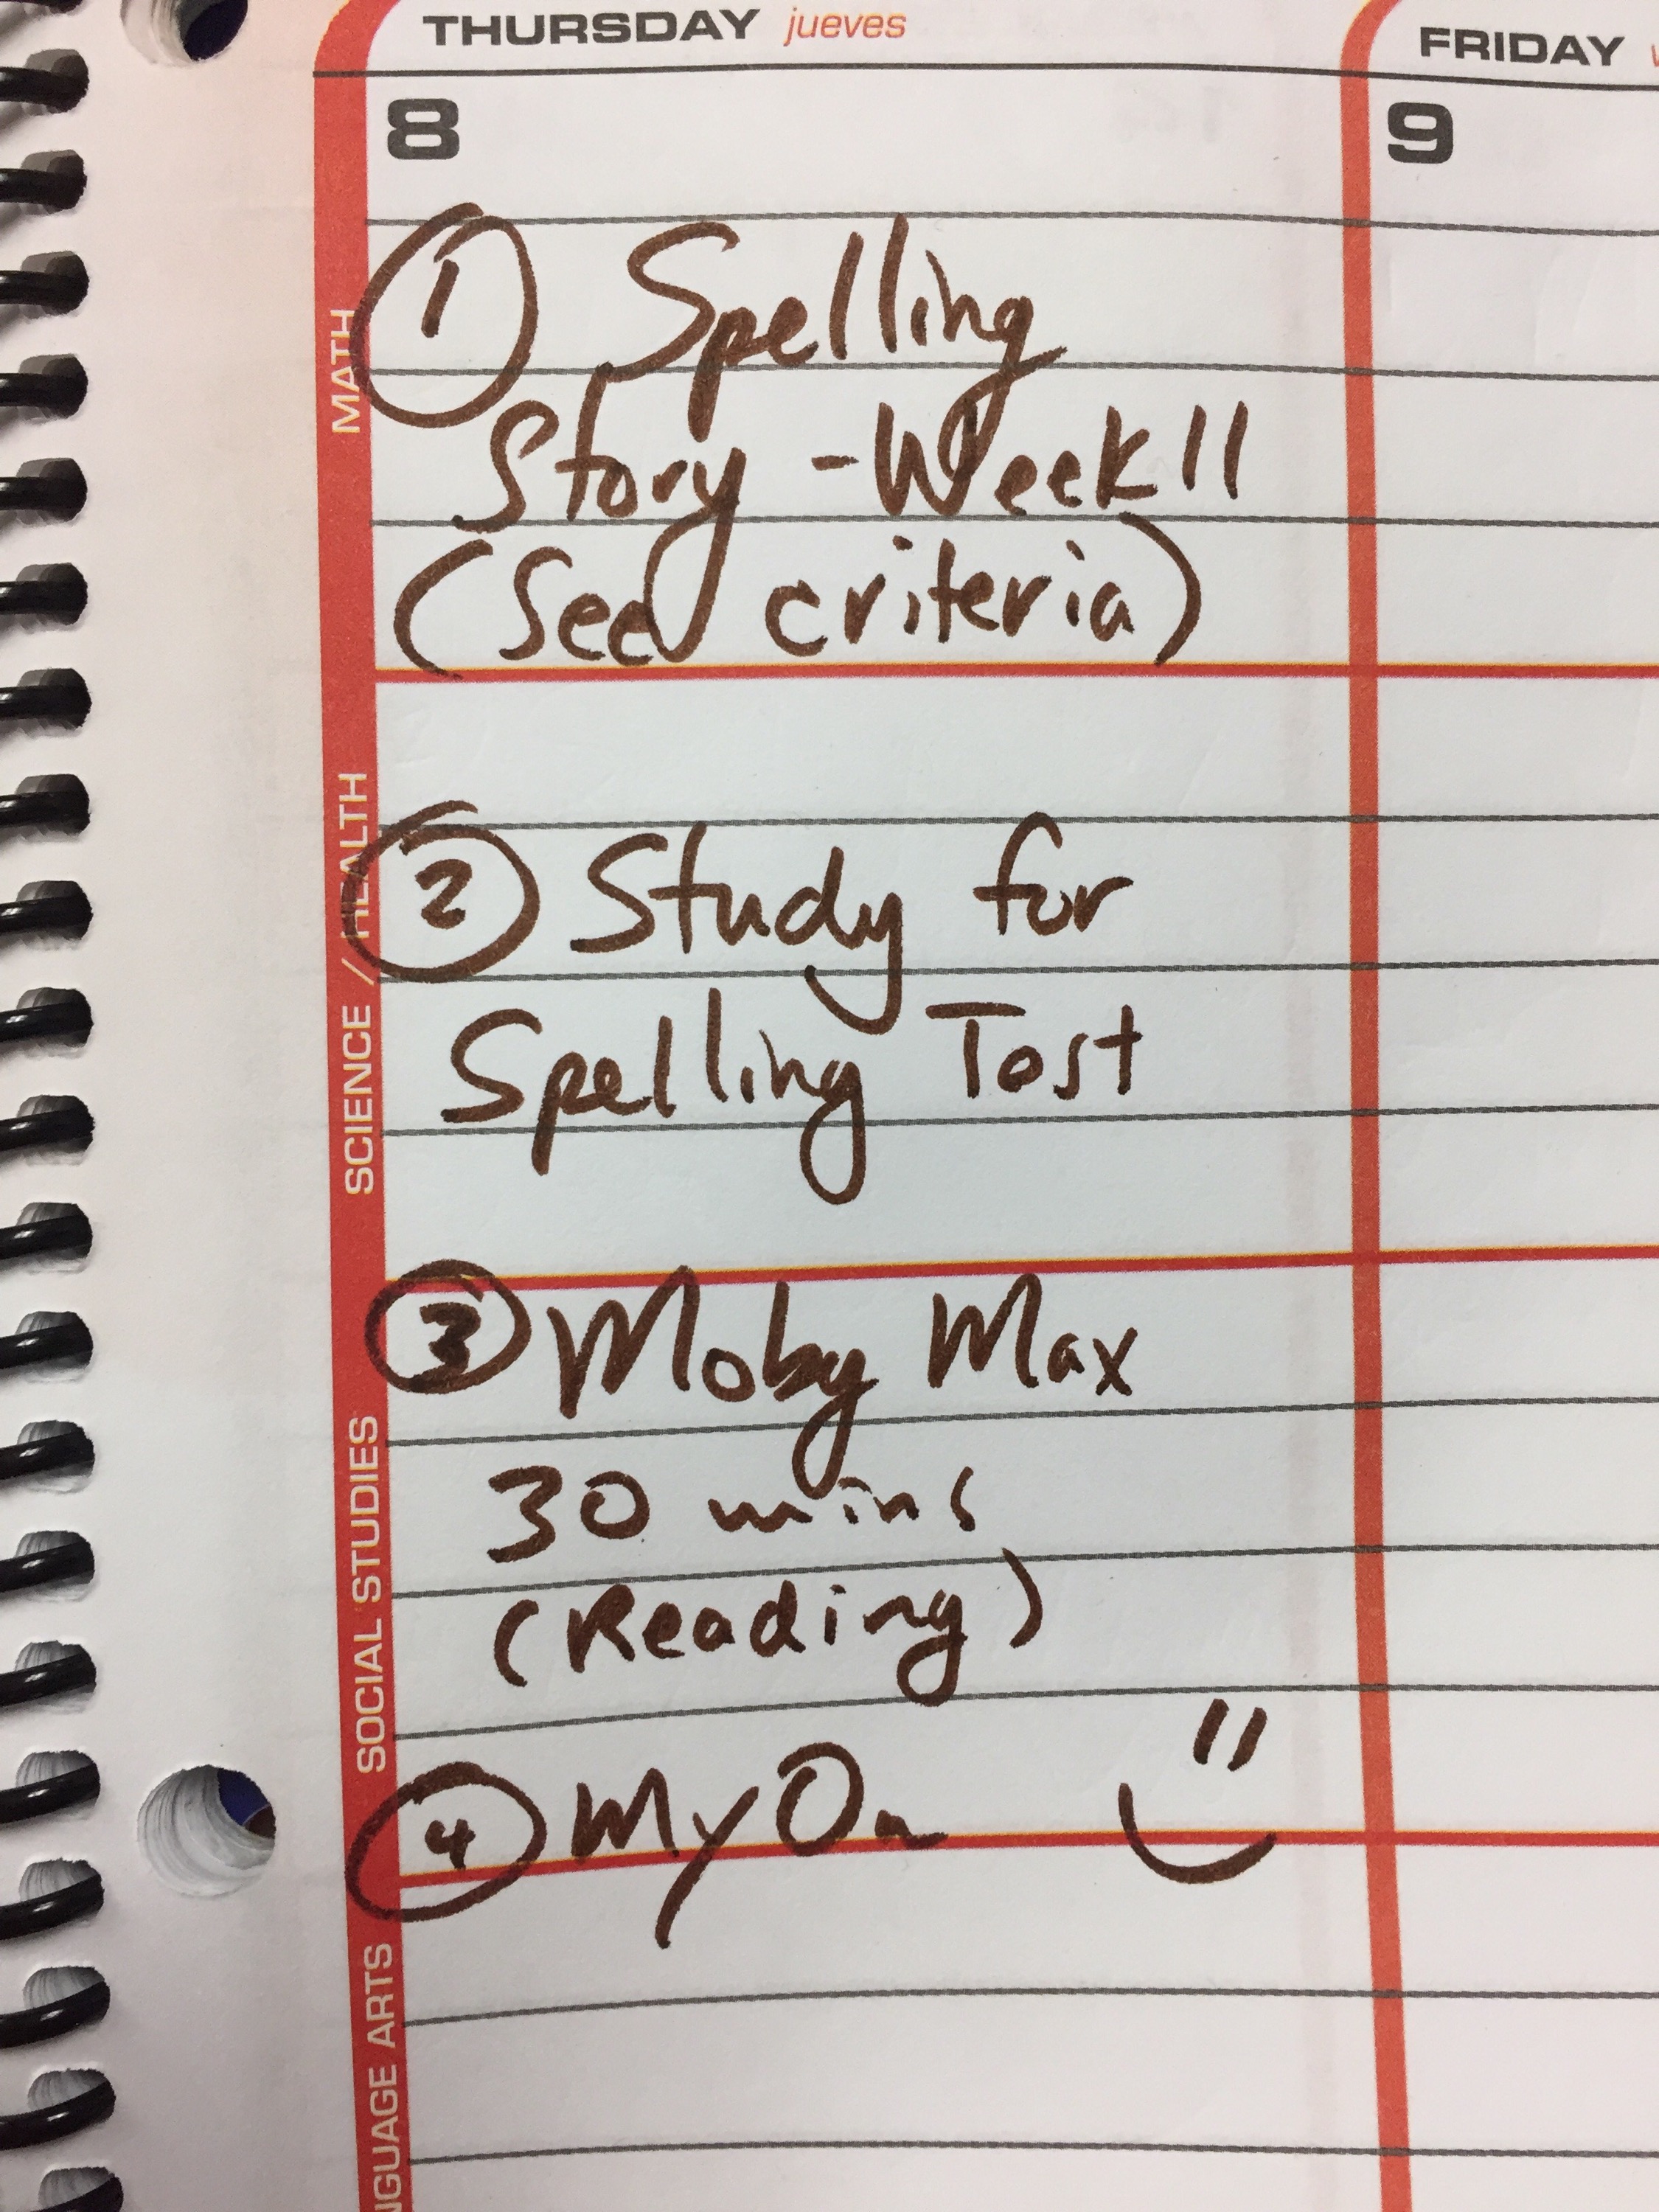 THURSDAY jueves
FRIDAY
8
9
MATH
① Spelling
Story - Week 11
(See criteria)
SCIENCE / HEALTH
② Study for
Spelling Test
SOCIAL STUDIES
③ Moby Max
30 mins
(Reading)
④ MyOn
NGUAGE ARTS